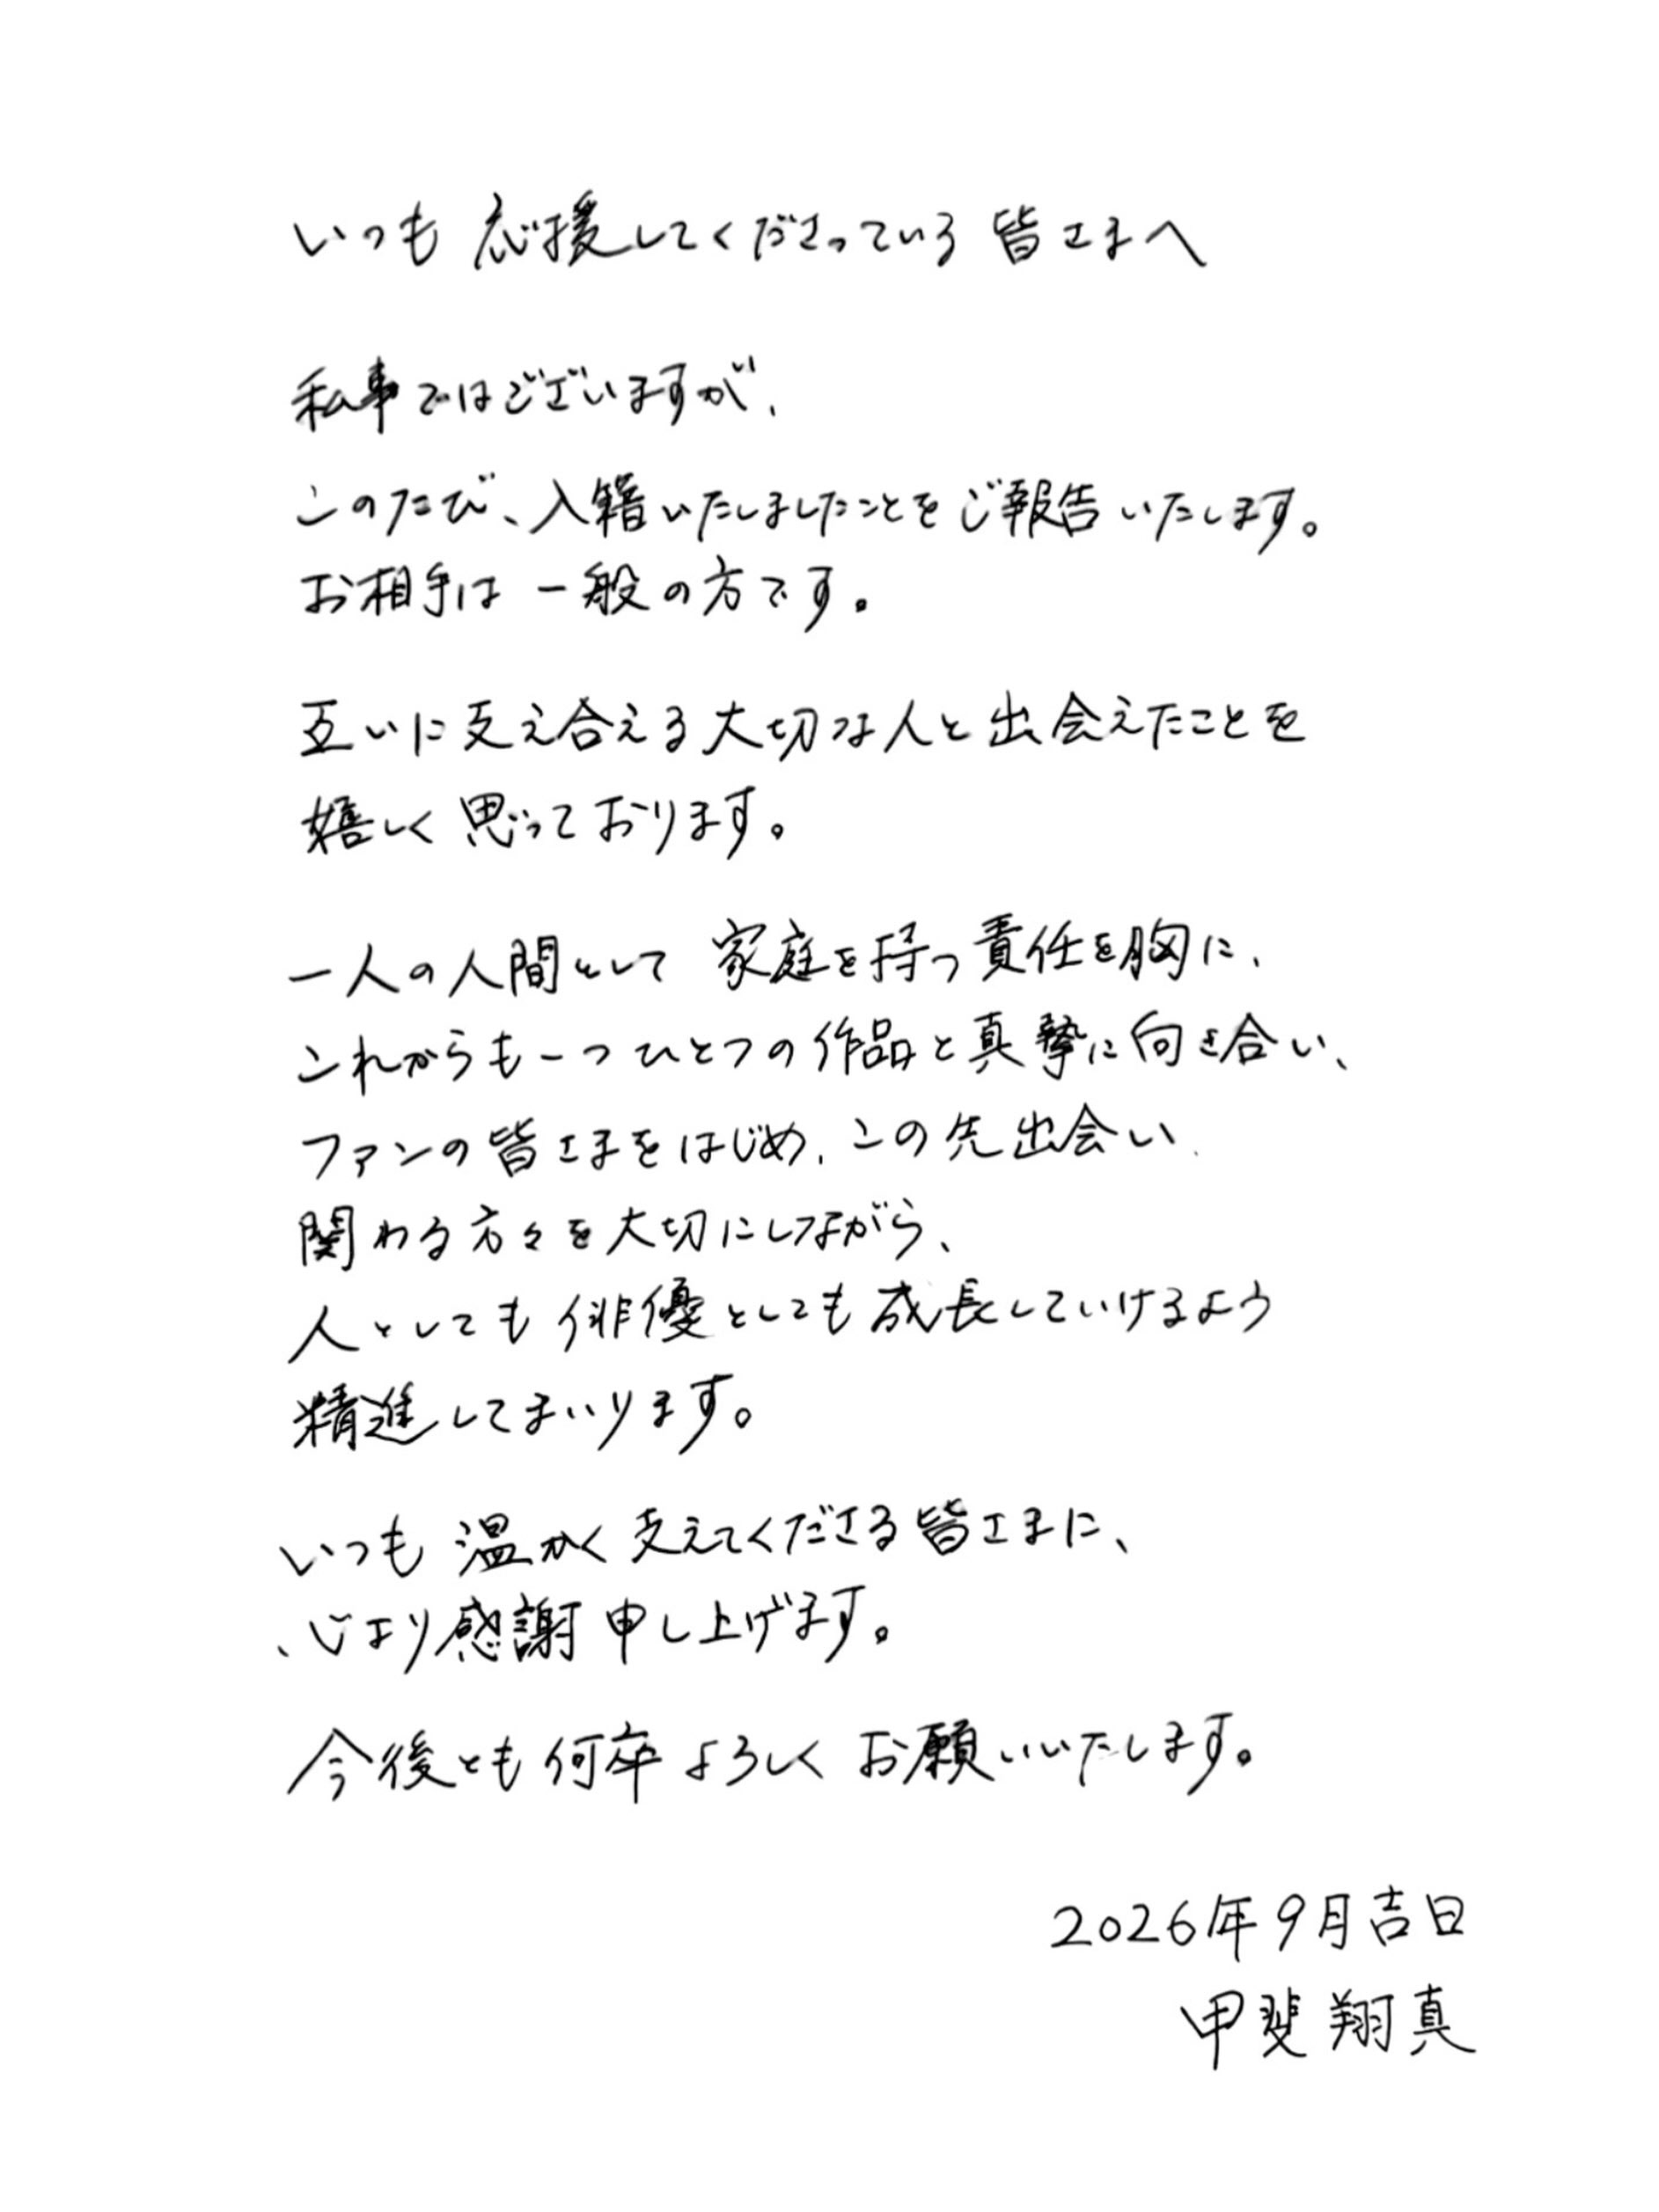 いつも応援してくださっている皆さまへ
私事ではございますが、
このたび、入籍いたしましたことをご報告いたします。
お相手は一般の方です。
互いに支え合える大切な人と出会えたことを
嬉しく思っております。
一人の人間として家庭を持つ責任を胸に、
これからも一つひとつの作品と真摯に向き合い、
ファンの皆さまをはじめ、この先出会い、
関わる方々を大切にしながら、
人としても俳優としても成長していけるよう
精進してまいります。
いつも温かく支えてくださる皆さまに、
心より感謝申し上げます。
今後とも何卒よろしくお願いいたします。
2026年9月吉日
甲斐翔真